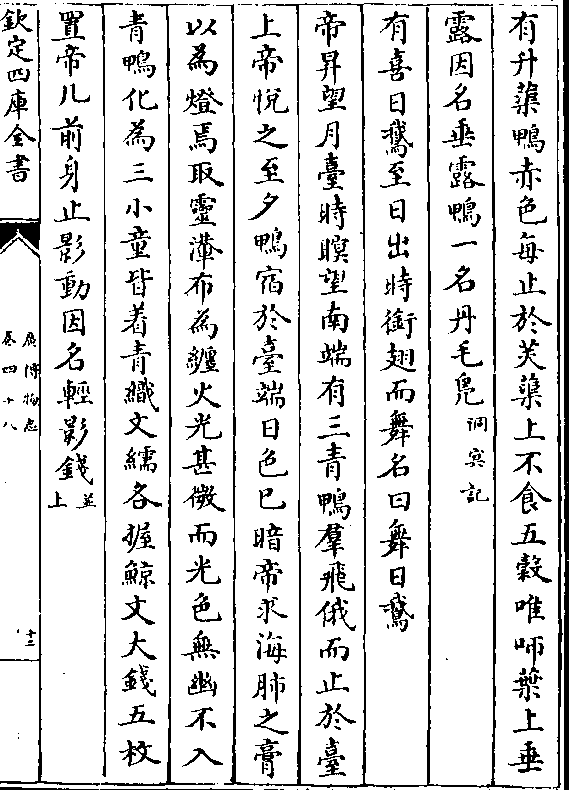 有升蕖鴨赤色每止於芙蕖上不食五穀唯咂葉上垂
露因名垂露鴨一名丹毛鳧洞冥記
有喜日鵞至日出時銜翅而舞名曰舞日鵞
帝昇望月臺時暝望南端有三青鴨羣飛俄而止於臺
上帝悅之至夕鴨宿於臺端日色已暗帝求海肺之膏
以為燈焉取靈瀵布為纏火光甚微而光色無幽不入
青鴨化為三小童皆着青織文繻各握鯨文大錢五枚
置帝几前身止影動因名輕影錢並上
欽定四庫全書
廣博物志
卷四十八
十三